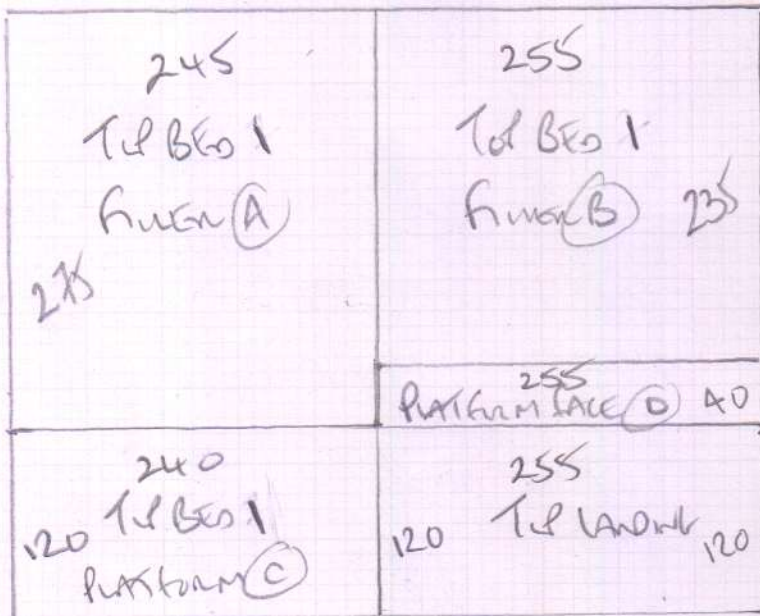 245
TOP BED 1
FILLER A
275
255
TOP BED 1
FILLER B 235
255
PLATFORM FACE D 40
240
TOP BED 1
120
PLATFORM C
255
TOP LANDING
120 120